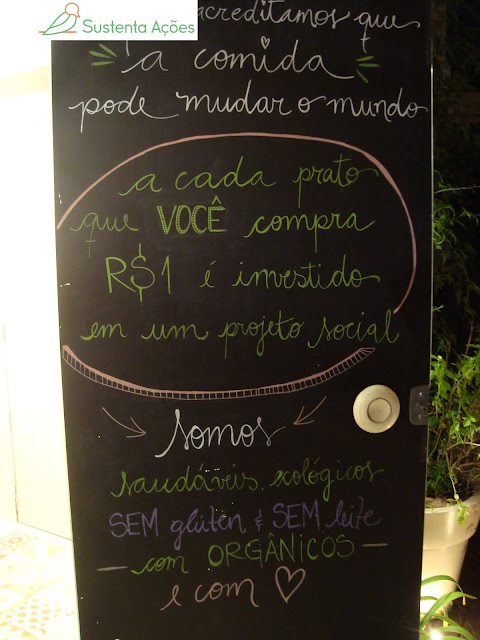 Sustenta Ações
acreditamos que
a comida
pode mudar o mundo
a cada prato
que VOCÊ compra
R$1 é investido
em um projeto social
somos
saudáveis, ecológicos
SEM glúten & SEM leite
com ORGÂNICOS
e com ♡